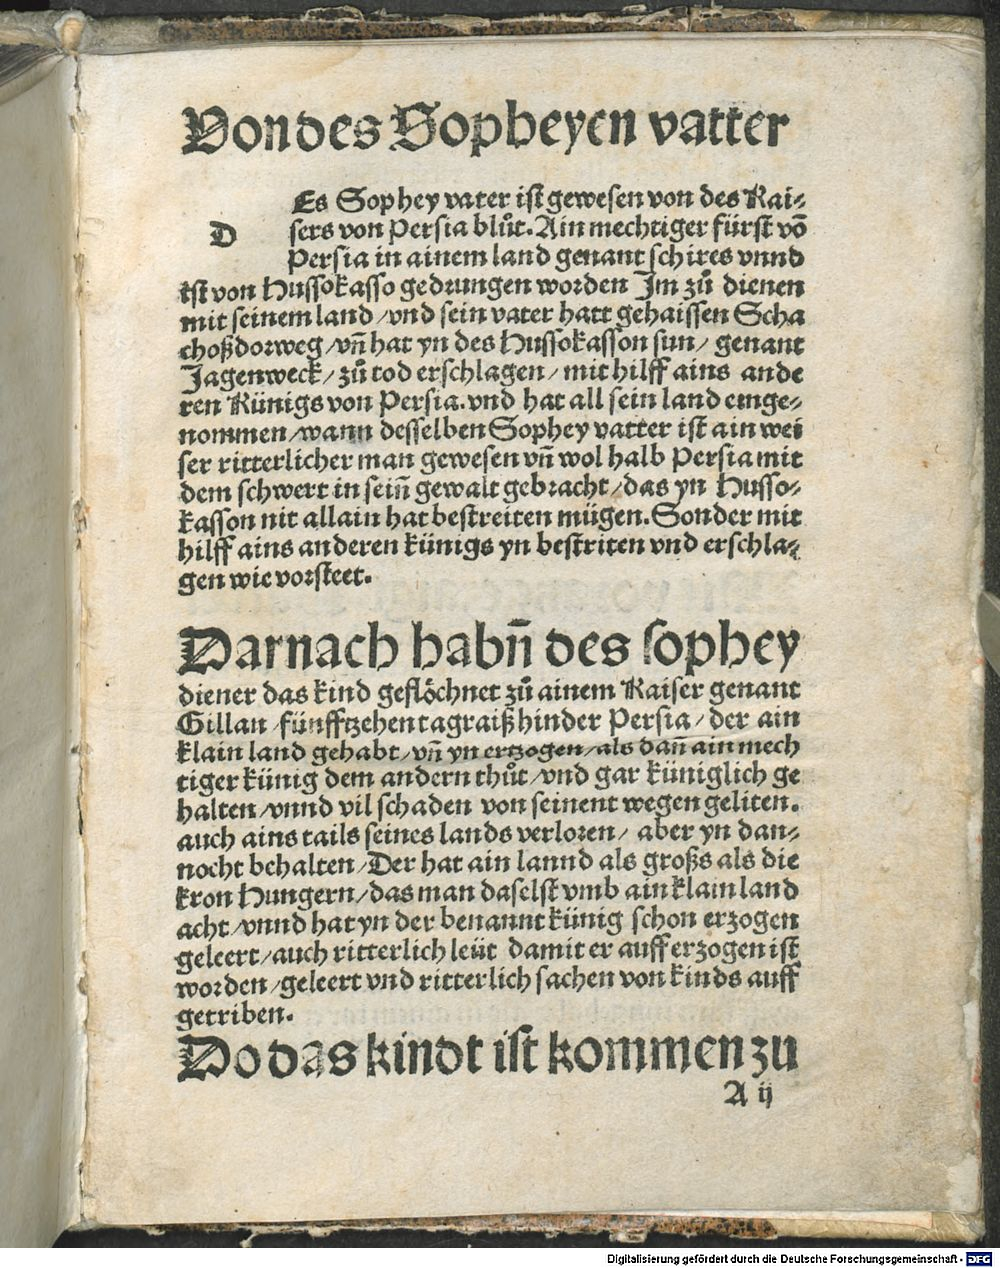 Von des Sopheyen vatter
DEs Sophey vater ist gewesen von des Kai-
sers von Persia blůt. Ain mechtiger fürst võ
Persia in ainem land genant schires vnnd
ist von Hussokasso gedrungen worden Im zů dienen
mit seinem land / vnd sein vater hatt gehaissen Scha
choßdorweg / vñ hat yn des Hussokasson sun / genant
Jagenweck / zů tod erschlagen / mit hilff ains ande
ren Künigs von Persia. vnd hat all sein land einge-
nommen / wann desselben Sophey vatter ist ain wei
ser ritterlicher man gewesen vñ wol halb Persia mit
dem schwert in seiñ gewalt gebracht / das yn Husso-
kasson nit allain hat bestreiten mügen. Sonder mit
hilff ains anderen künigs yn bestriten vnd erschla-
gen wie vorsteet.
Darnach habñ des sophey
diener das kind geflöchnet zů ainem Kaiser genant
Gillan / fünfftzehen tagraiß hinder Persia / der ain
klain land gehabt / vñ yn ertzogen / als dañ ain mech
tiger künig dem andern thůt / vnd gar küniglich ge
halten / vnnd vil schaden von seinent wegen geliten.
auch ains tails seines lands verloren / aber yn dan-
nocht behalten / Der hat ain lannd als groß als die
kron Hungern / das man daselst vmb ain klain land
acht / vnnd hat yn der benannt künig schon erzogen
geleert / auch ritterlich leüt damit er auff erzogen ist
worden / geleert vnd ritterlich sachen von kinds auff
getriben.
Do das kindt ist kommen zu
A ij
Digitalisierung gefördert durch die Deutsche Forschungsgemeinschaft - DFG